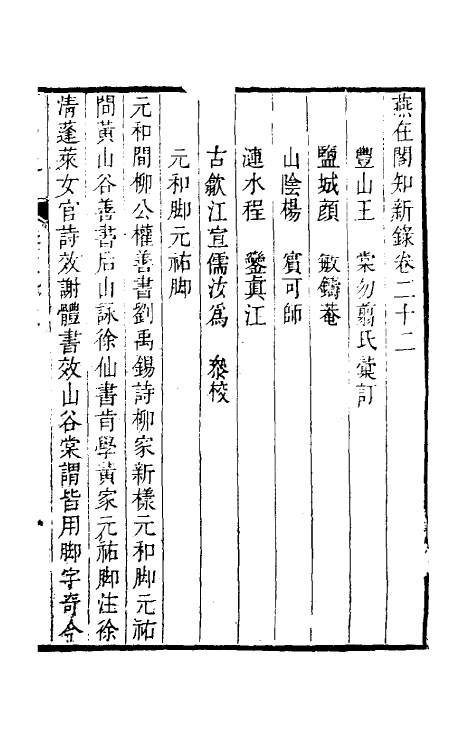 燕在閣知新錄卷二十二
豐山王　棠勿翦氏彙訂
鹽城顔　敏鑄菴
山陰楊　賓可師
漣水程　鑾眞江
古歙江宣儒汝爲　叅校
元和脚元祐脚
元和間柳公權善書劉禹錫詩柳家新樣元和脚元祐
間黃山谷善書后山詠徐仙書肯學黃家元祐脚注徐
清蓬萊女官詩效謝體書效山谷棠謂皆用脚字奇今